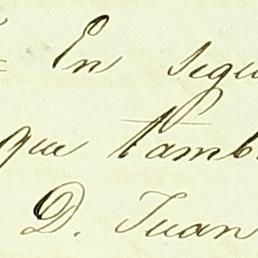 = En segu
que tamb
D. Juan